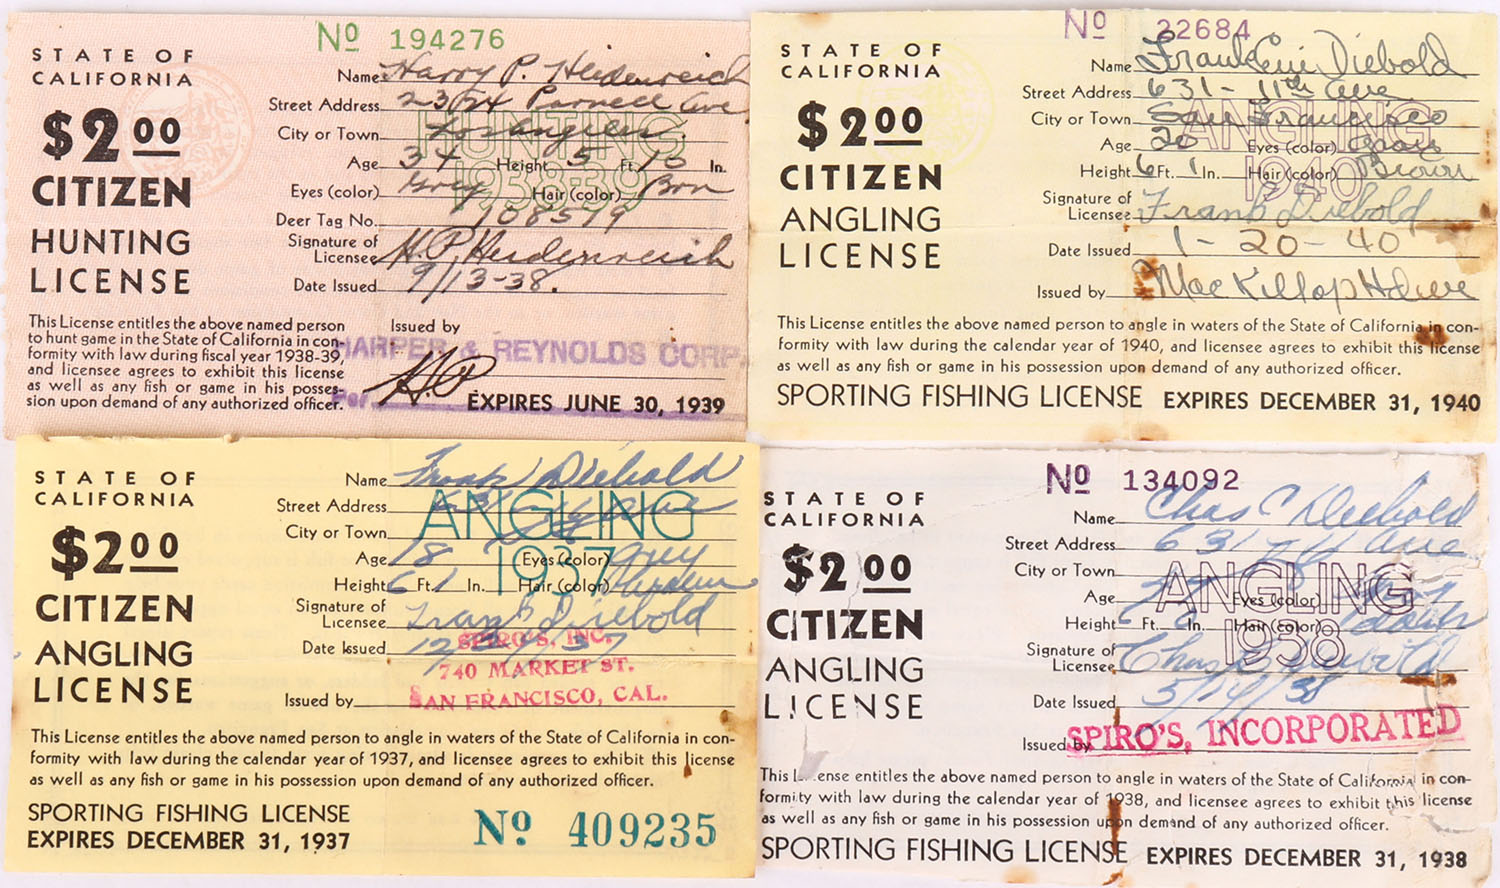 Nº 194276
STATE OF
CALIFORNIA
$2.00
CITIZEN
HUNTING
LICENSE
Name Harry P. Heidenreich
Street Address 2324 Parnell Ave
City or Town Los Angeles.
HUNTING
1938-39
Age 34 Height 5 Ft. 10 In.
Eyes (color) Grey Hair (color) Brn
Deer Tag No. 108579
Signature of
Licensee H.P. Heidenreich
Date Issued 9/13-38.
This License entitles the above named person
to hunt game in the State of California in con-
formity with law during fiscal year 1938-39,
and licensee agrees to exhibit this license
as well as any fish or game in his posses-
sion upon demand of any authorized officer.
Issued by
HARPER & REYNOLDS CORP.
Per H.P.
EXPIRES JUNE 30, 1939
Nº 22684
STATE OF
CALIFORNIA
$2.00
CITIZEN
ANGLING
LICENSE
Name Frank Diebold
Street Address 631 - 11th Ave
City or Town San Francisco
ANGLING
1940
Age 20 Eyes (color)
Height 6 Ft. 1 In. Hair (color) Brown
Signature of
Licensee Frank Diebold
Date Issued 1-20-40
Issued by MacKillop Hdwe
This License entitles the above named person to angle in waters of the State of California in con-
formity with law during the calendar year of 1940, and licensee agrees to exhibit this license
as well as any fish or game in his possession upon demand of any authorized officer.
SPORTING FISHING LICENSE EXPIRES DECEMBER 31, 1940
STATE OF
CALIFORNIA
$2.00
CITIZEN
ANGLING
LICENSE
Name Frank Diebold
Street Address 631
City or Town
ANGLING
1937
Age 18 Eyes (color) Grey
Height 6 Ft. 1 In. Hair (color)
Signature of
Licensee Frank Diebold
Date Issued
Issued by
SPIRO'S, INC.
740 MARKET ST.
SAN FRANCISCO, CAL.
This License entitles the above named person to angle in waters of the State of California in con-
formity with law during the calendar year of 1937, and licensee agrees to exhibit this license
as well as any fish or game in his possession upon demand of any authorized officer.
SPORTING FISHING LICENSE
EXPIRES DECEMBER 31, 1937
Nº 409235
Nº 134092
STATE OF
CALIFORNIA
$2.00
CITIZEN
ANGLING
LICENSE
Name Chas C Diebold
Street Address 631 Ave
City or Town
ANGLING
1938
Age Eyes (color)
Height Ft. In. Hair (color)
Signature of
Licensee Chas Diebold
Date Issued 5/14/38
Issued by SPIRO'S, INCORPORATED
This License entitles the above named person to angle in waters of the State of California in con-
formity with law during the calendar year of 1938, and licensee agrees to exhibit this license
as well as any fish or game in his possession upon demand of any authorized officer.
SPORTING FISHING LICENSE EXPIRES DECEMBER 31, 1938